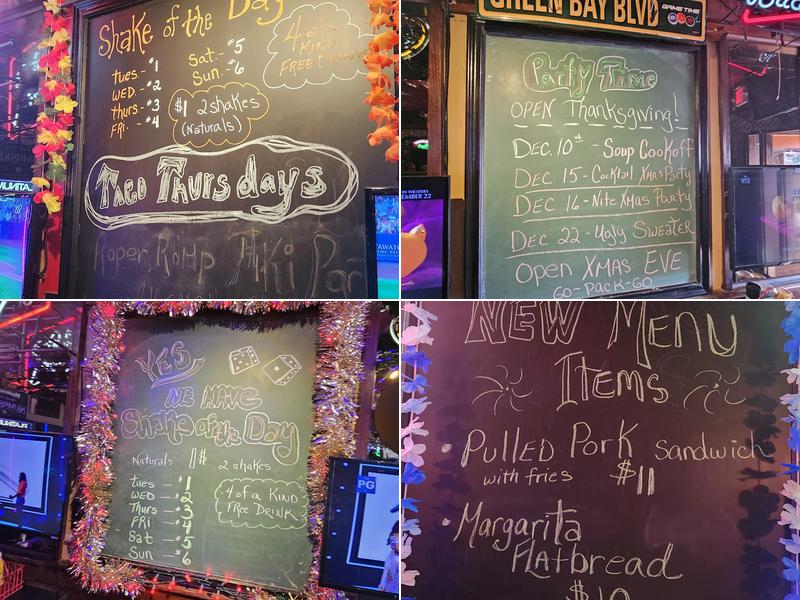 Shake of the Day
tues.- #1
WED.- #2
thurs - #3
FRI. - #4
Sat.- #5
Sun.- #6
4 of a
KIND
FREE DRINK
$1 2 shakes
(Naturals)
Theo Thursdays
GREEN BAY BLVD
GAME TIME
Party Time
OPEN Thanksgiving!
DEC. 10th - Soup Cookoff
DEC. 15 - Cocktial Xmas Party
DEC 16 - Nite Xmas Party
DEC 22 - Ugly SWEATER
Open XMAS EVE
GO-PACK-GO
IN THEATERS
EMBER 22
YES
WE HAVE
Shake of the Day
Naturals 1$ 2 shakes
tues - #1
WED - #2
Thurs - #3
FRI - #4
Sat - #5
Sun - #6
4 of a KIND
FREE DRINK
PG
NEW MENU
ITEMS
• PULLED PORK Sandwich
with fries $11
• Margarita
FLAtbread
$10